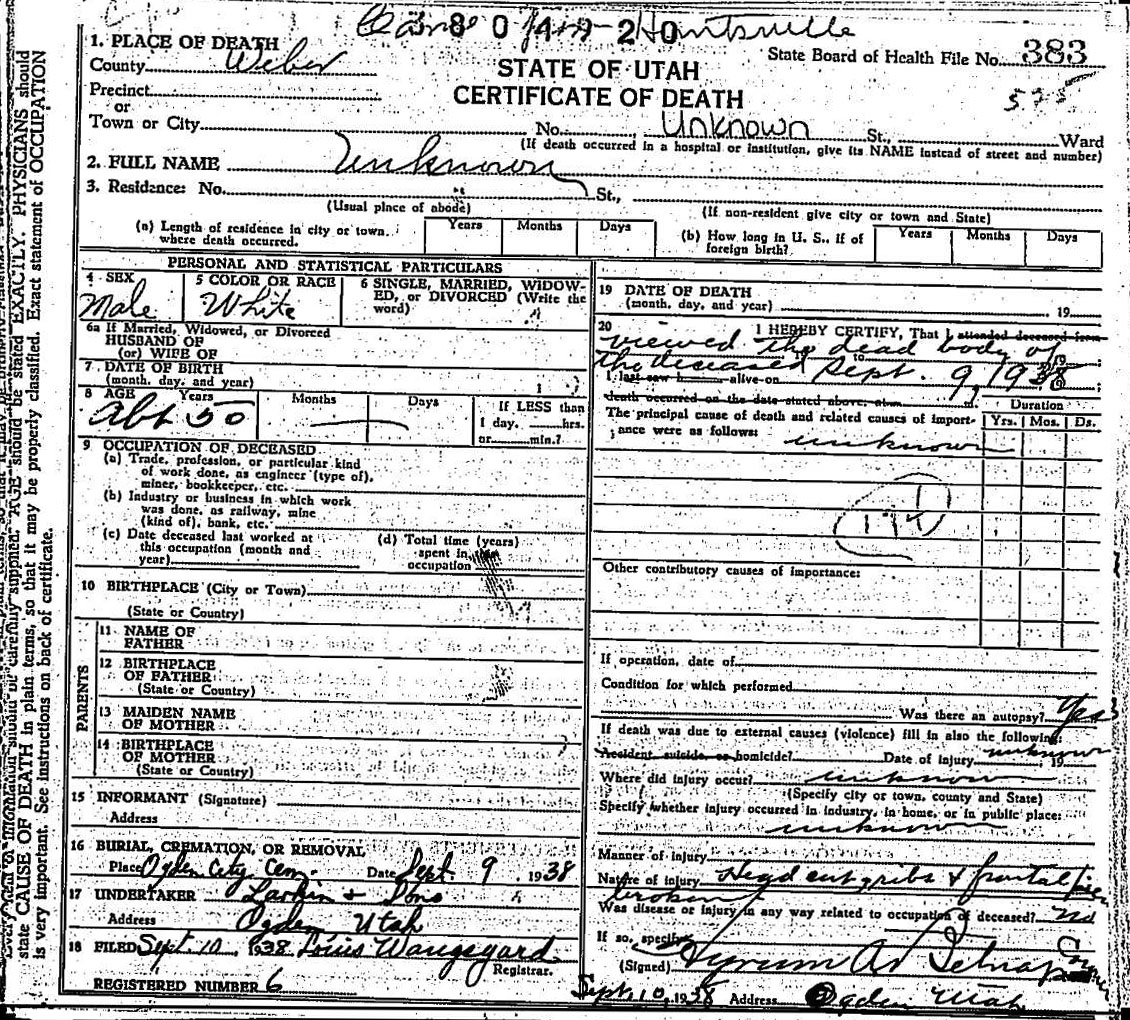 3 8 0 4 9 2 0 Huntsville
1. PLACE OF DEATH
County Weber
State Board of Health File No. 383
575
STATE OF UTAH
CERTIFICATE OF DEATH
Precinct
or
Town or City No. Unknown St., Ward
(If death occurred in a hospital or institution, give its NAME instead of street and number)
2. FULL NAME Unknown
3. Residence: No. St.,
(Usual place of abode)
(If non-resident give city or town and State)
(a) Length of residence in city or town where death occurred. Years Months Days
(b) How long in U. S., if of foreign birth? Years Months Days
PERSONAL AND STATISTICAL PARTICULARS
4 SEX Male
5 COLOR OR RACE White
6 SINGLE, MARRIED, WIDOWED, or DIVORCED (Write the word)
6a If Married, Widowed, or Divorced
HUSBAND OF
(or) WIFE OF
7 DATE OF BIRTH
(month, day, and year)
8 AGE Years Months Days
Abt 50
If LESS than
1 day, hrs.
or min.?
9 OCCUPATION OF DECEASED
(a) Trade, profession, or particular kind
of work done, as engineer (type of),
miner, bookkeeper, etc.
(b) Industry or business in which work
was done, as railway, mine
(kind of), bank, etc.
(c) Date deceased last worked at
this occupation (month and
year)
(d) Total time (years)
spent in this
occupation
10 BIRTHPLACE (City or Town)
(State or Country)
PARENTS
11 NAME OF
FATHER
12 BIRTHPLACE
OF FATHER
(State or Country)
13 MAIDEN NAME
OF MOTHER
14 BIRTHPLACE
OF MOTHER
(State or Country)
15 INFORMANT (Signature)
Address
16 BURIAL, CREMATION, OR REMOVAL
Place Ogden City Cem. Date Sept. 9 1938
17 UNDERTAKER Larkin & Sons
Address Ogden Utah
18 FILED Sept. 10 1938 Louis Wangsgard
Registrar.
REGISTERED NUMBER 6
19 DATE OF DEATH
(month, day, and year) 19
20 I HEREBY CERTIFY, That I attended deceased from
viewed the dead body of
the deceased to Sept. 9, 1938
I last saw h alive on
death occurred on the date stated above, at m.
Duration
The principal cause of death and related causes of importance were as follows: Yrs. Mos. Ds.
unknown
Other contributory causes of importance:
If operation, date of
Condition for which performed
Was there an autopsy? Yes
If death was due to external causes (violence) fill in also the following:
Accident, suicide or homicide? Date of injury unknown 19
Where did injury occur? unknown
(Specify city or town, county and State)
Specify whether injury occurred in industry, in home, or in public place:
unknown
Manner of injury
Nature of injury Head cut & ribs & frontal
broken
Was disease or injury in any way related to occupation of deceased? No
If so, specify
(Signed) Hyrum A. Belnap Coroner
Sept. 10, 1938 Address Ogden Utah
state CAUSE OF DEATH in plain terms, so that it may be properly classified. Exact statement of OCCUPATION
is very important. See instructions on back of certificate.